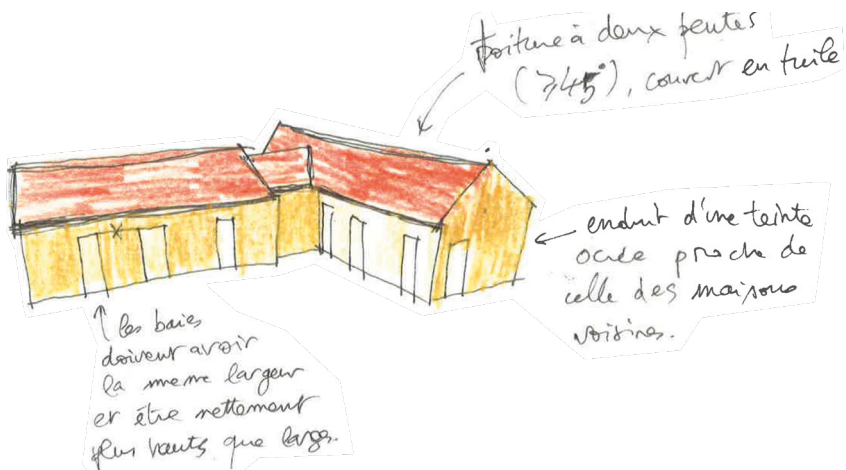 toiture à deux pentes
(⩾45°), couvert en tuile
enduit d'une teinte
ocrée proche de
celle des maisons
voisines.
les baies
doivent avoir
la meme largeur
et être nettement
plus hauts que larges.